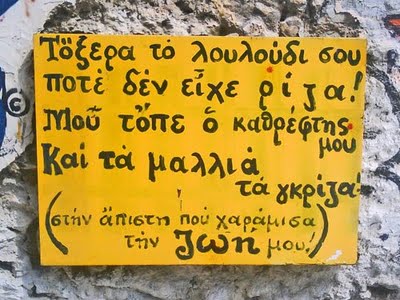 Τὄξερα τὸ λουλούδι σου
ποτὲ δὲν εἶχε ρίζα!
Μοῦ τὄπε ὁ καθρέφτης
μου
Καὶ τὰ μαλλιὰ
τὰ γκρίζα!
(στὴν ἄπιστη ποὺ χαράμισα
τὴν Ζωή μου!)
©